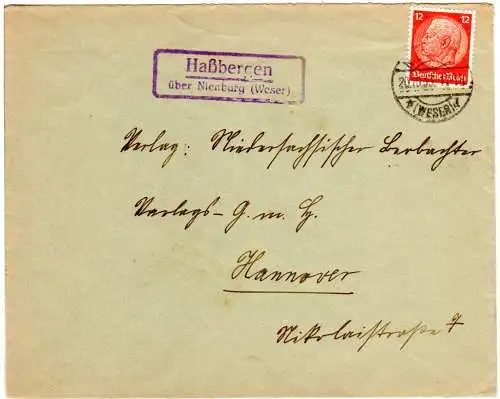 12 12
Deutsches Reich
Haßbergen
über Nienburg (Weser)
(WESER)
Verlag: Niedersächsischer Beobachter
Verlags-G.m.H.
Hannover
Nikolaistraße 7